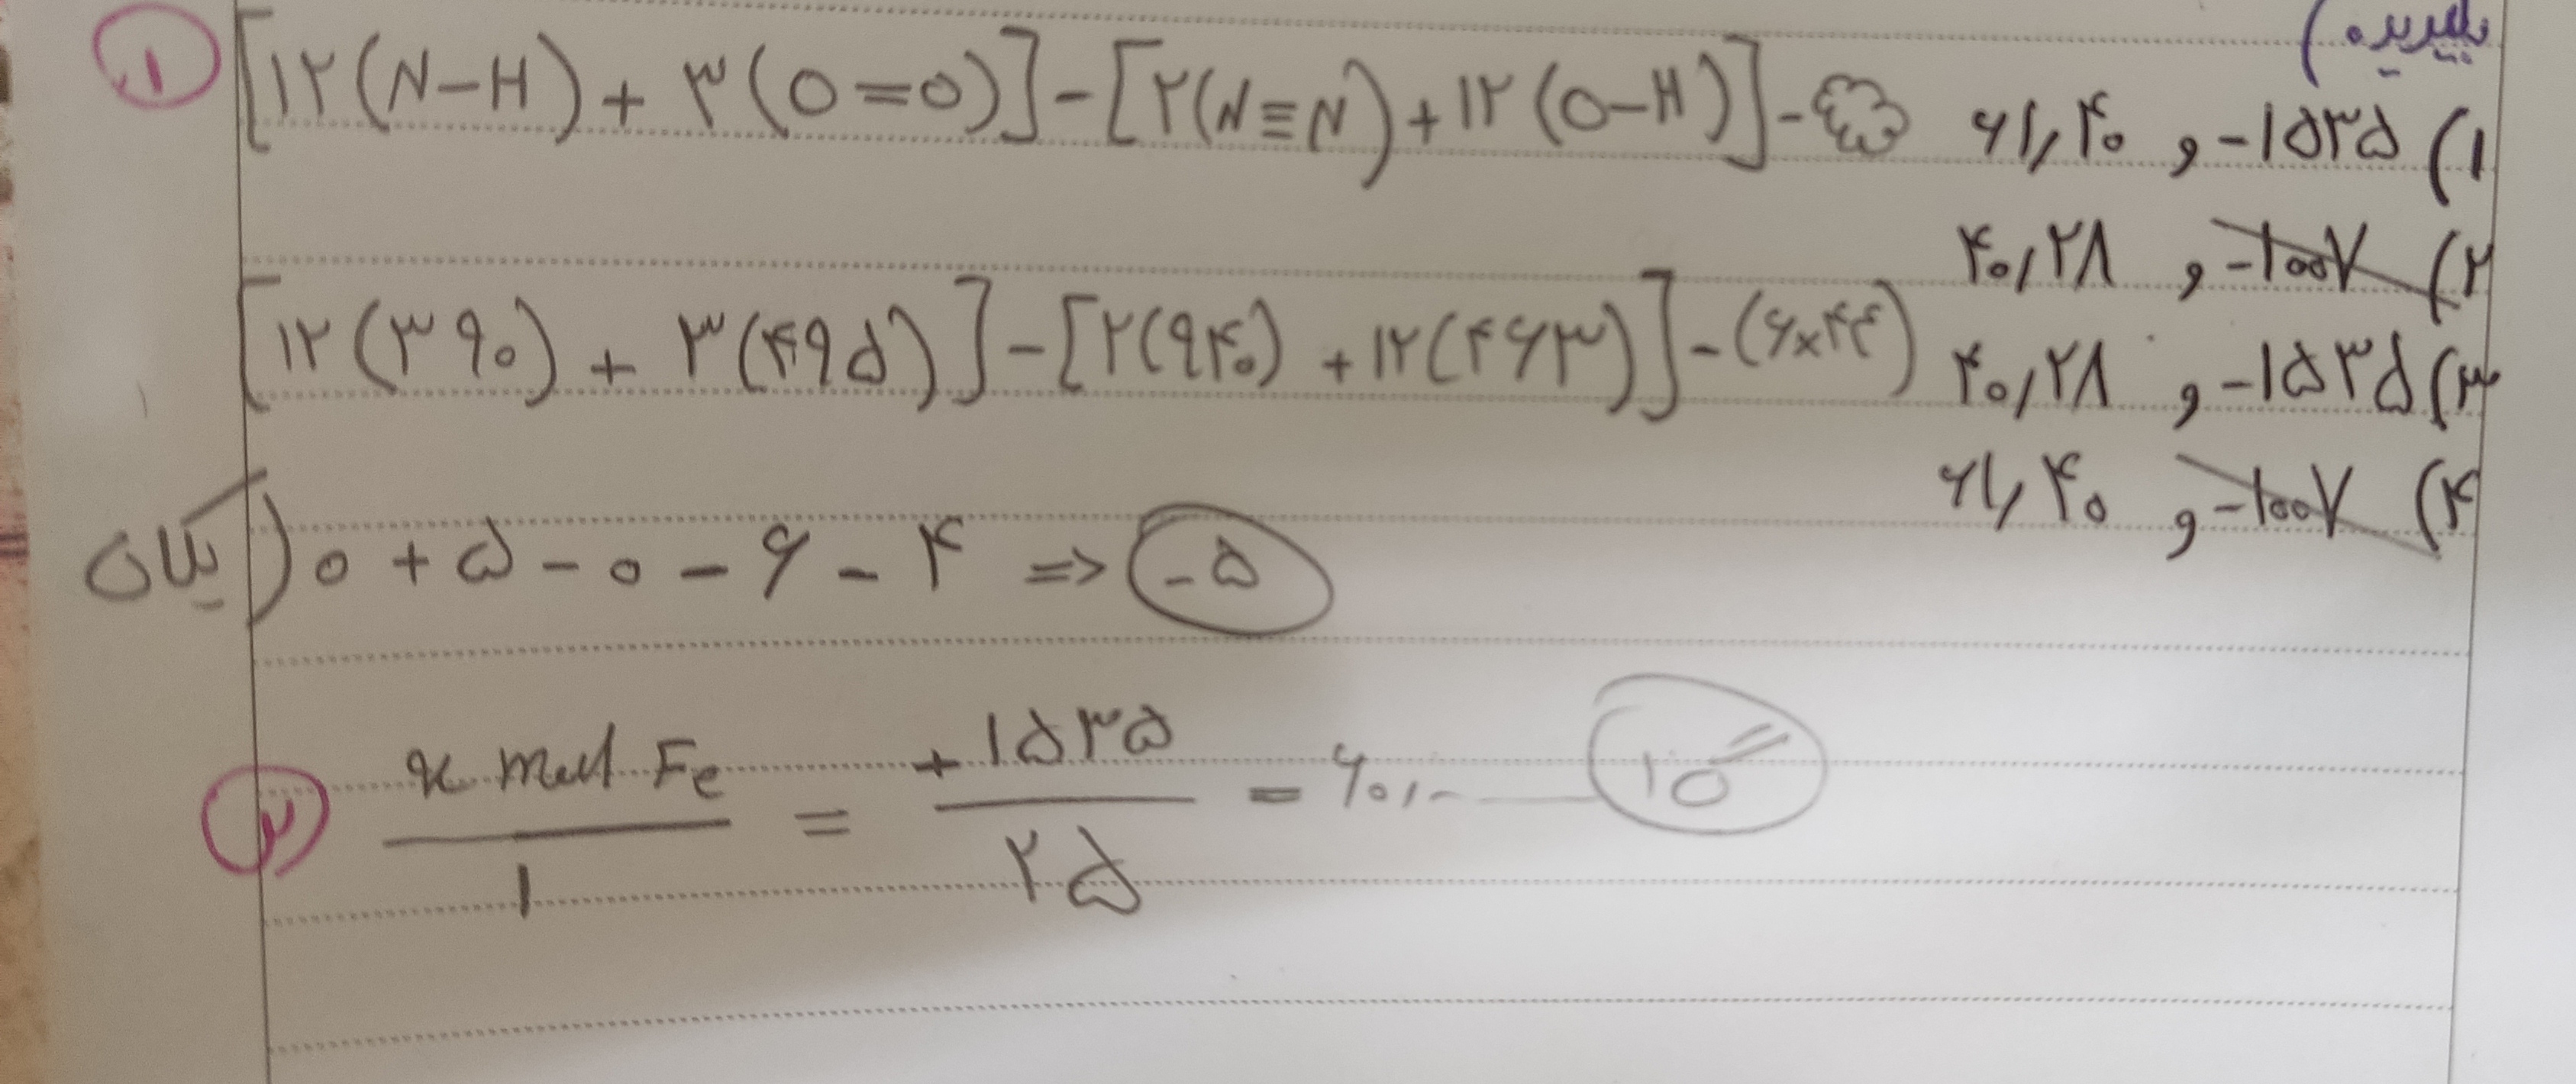 بگیرید)
۱. [۱۲(N-H) + ۳(O=O)] - [۲(N≡N) + ۱۲(O-H)] -
۱) -۱۵۳۵ و ۶۱,۴۰
۲) -۱۰۰۷ و ۴۰,۲۸
[۱۲(۳۹۰) + ۳(۴۹۵)] - [۲(۹۴۰) + ۱۲(۴۶۳)] - (۶×۴۴)
۳) -۱۵۳۵ و ۴۰,۲۸
۴) -۱۰۰۷ و ۶۱,۴۰
یکان) ۰ + ۵ - ۰ - ۶ - ۴ => -۵
۲ x mol Fe / ۱ = +۱۵۳۵ / ۲۵ = ۶۰,